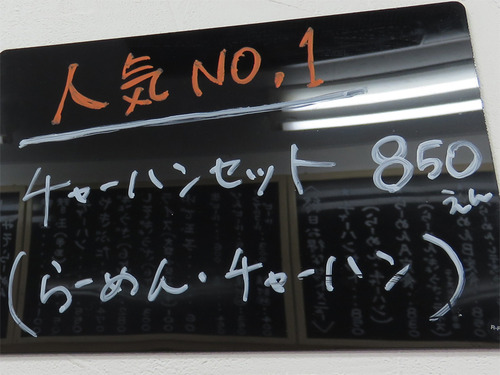 人気NO.1
チャーハンセット 850えん
(らーめん・チャーハン)